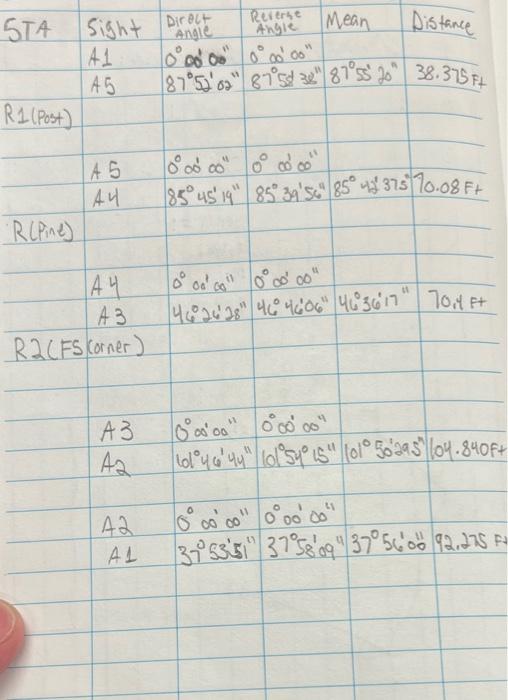 STA Sight Direct Angle Reverse Angle Mean Distance
A1 0° 00' 00" 0° 00' 00"
A5 87° 52' 02" 87° 58' 38" 87° 55' 20" 38.375 Ft
R1 (Post)
A5 0° 00' 00" 0° 00' 00"
A4 85° 45' 19" 85° 39' 56" 85° 42' 37.5" 70.08 Ft
R(Pine)
A4 0° 00' 00" 0° 00' 00"
A3 46° 26' 28" 46° 46' 06" 46° 36' 17" 70.4 Ft
R2 (FS Corner)
A3 0° 00' 00" 0° 00' 00"
A2 101° 46' 44" 101° 54' 15" 101° 50' 29.5" 104.840 Ft
A2 0° 00' 00" 0° 00' 00"
A1 37° 53' 51" 37° 58' 09" 37° 56' 00" 92.275 Ft